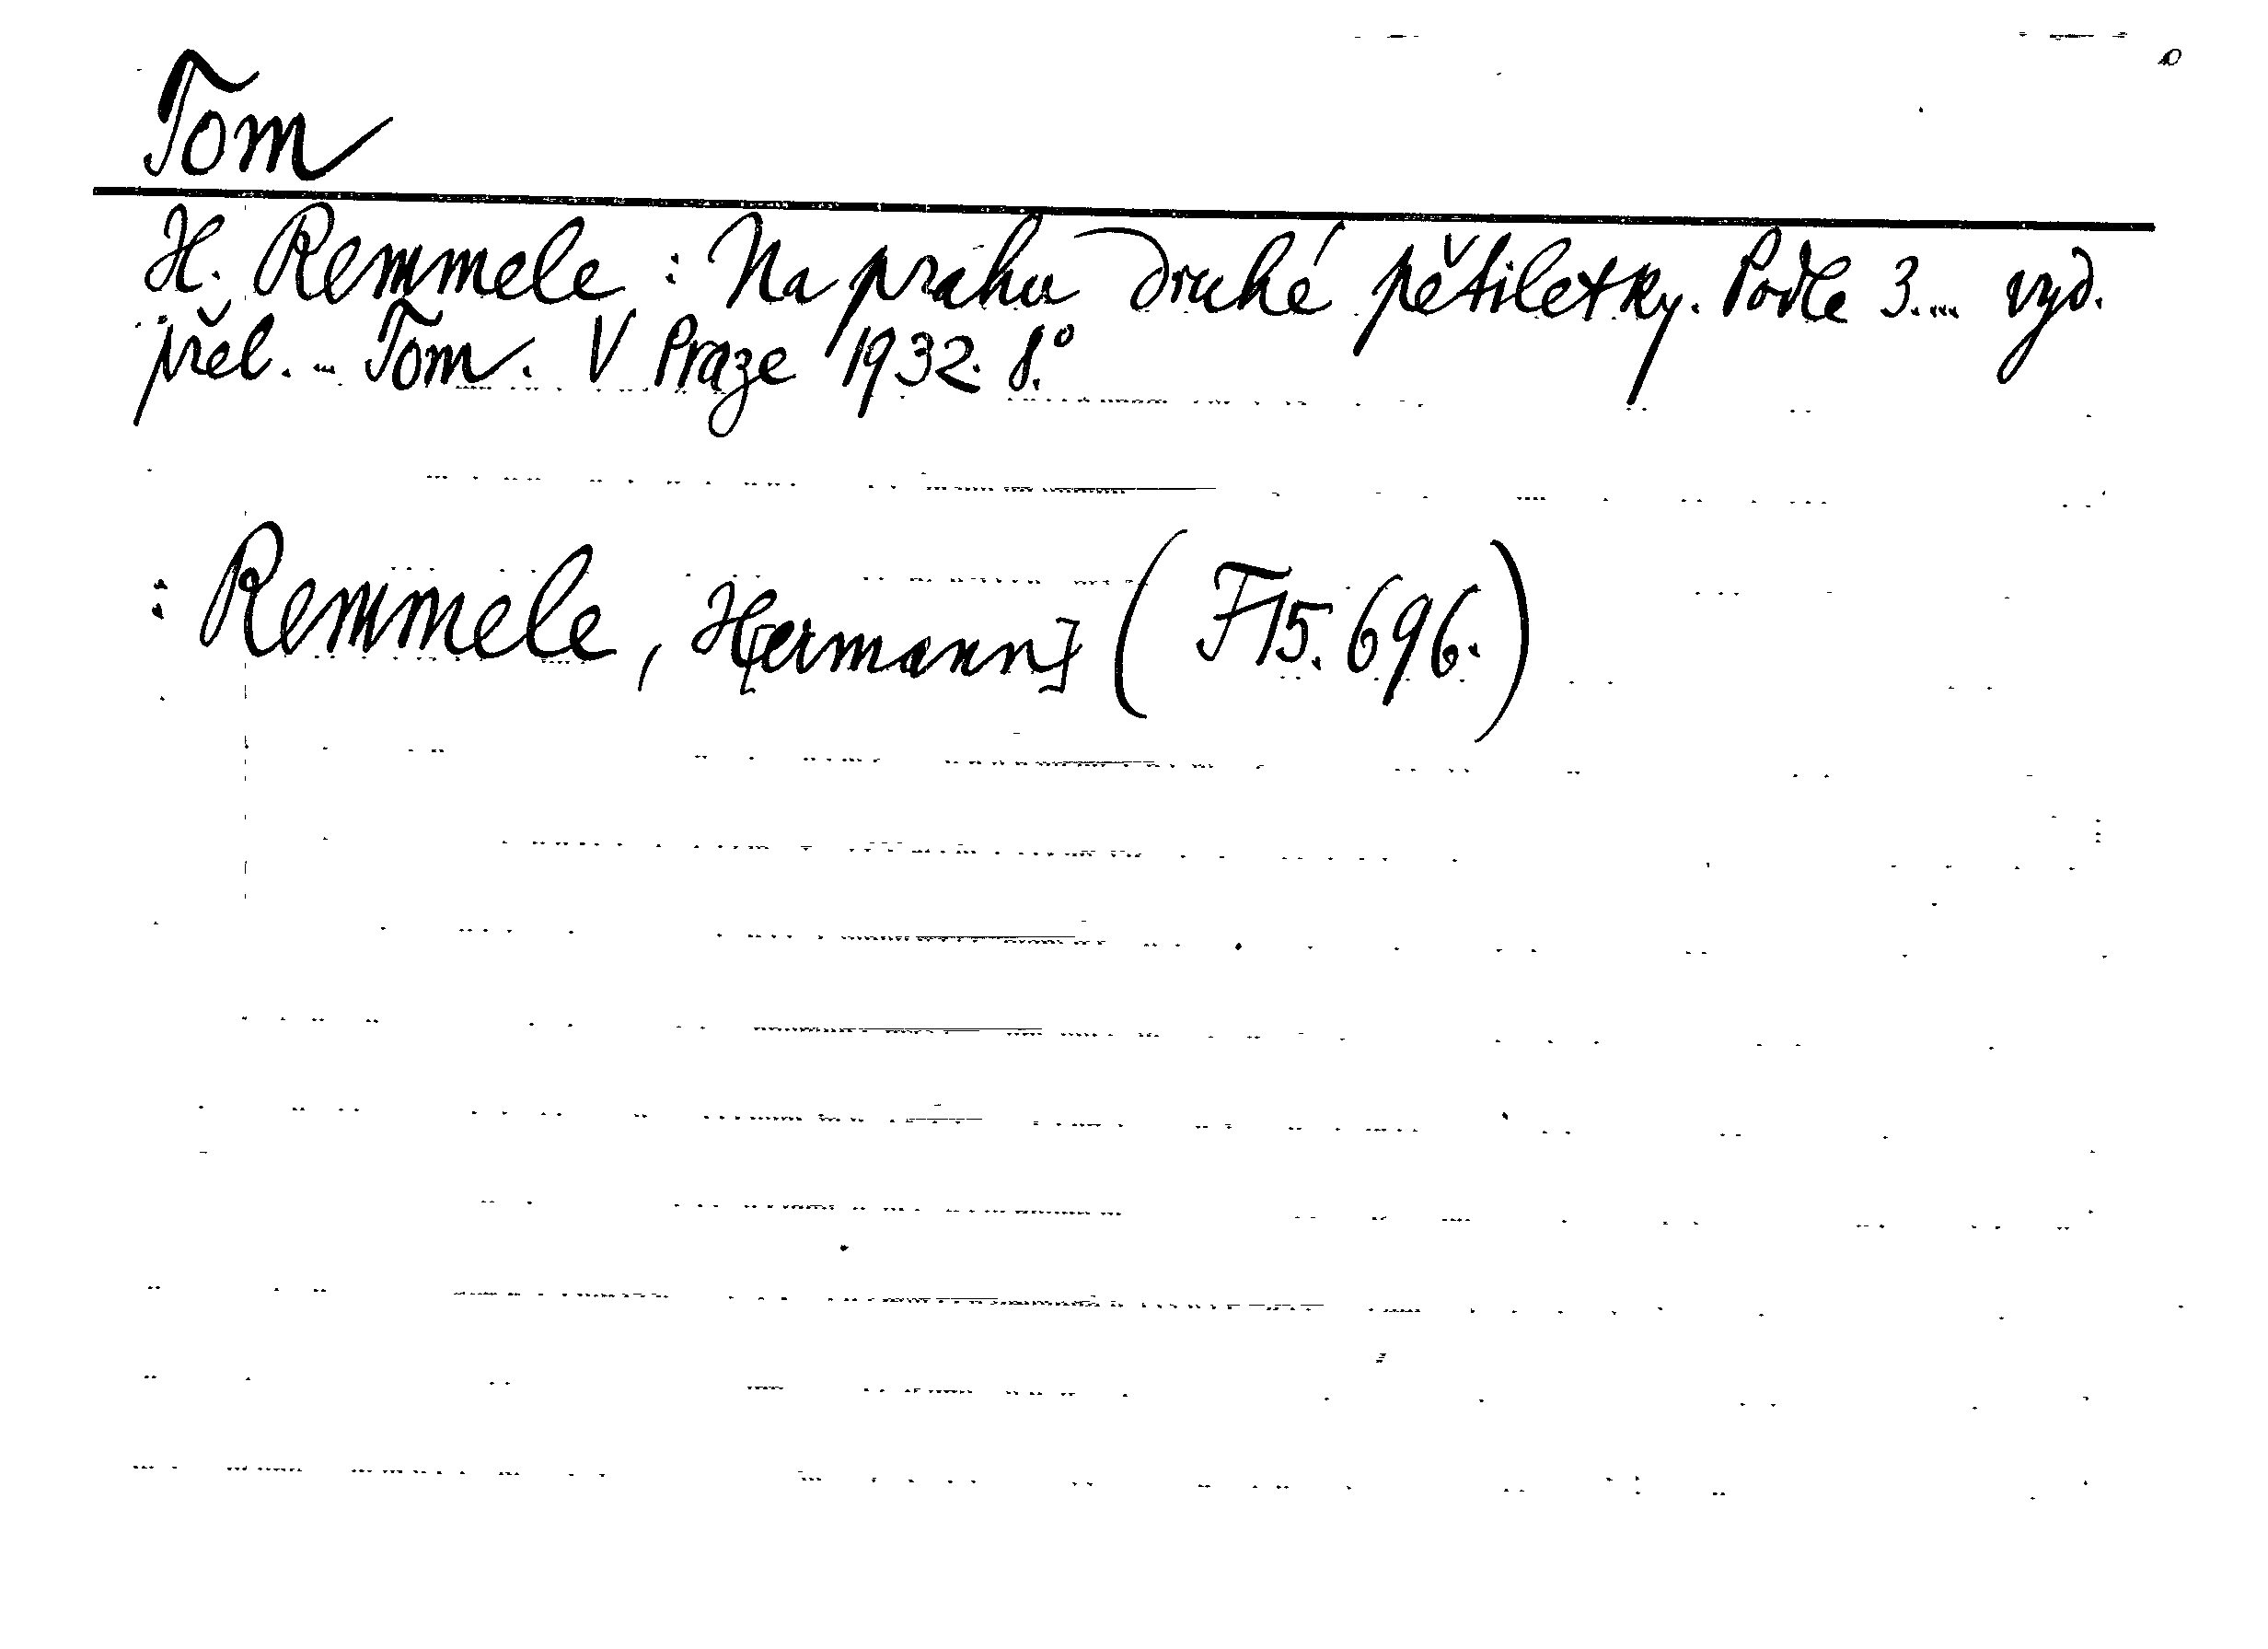 Tom
H. Remmele: Na prahu druhé pětiletky. Podle 3.... vyd.
přel. ... Tom. V Praze 1932. 8.°
: Remmele, H[ermann] (F 15.696.)